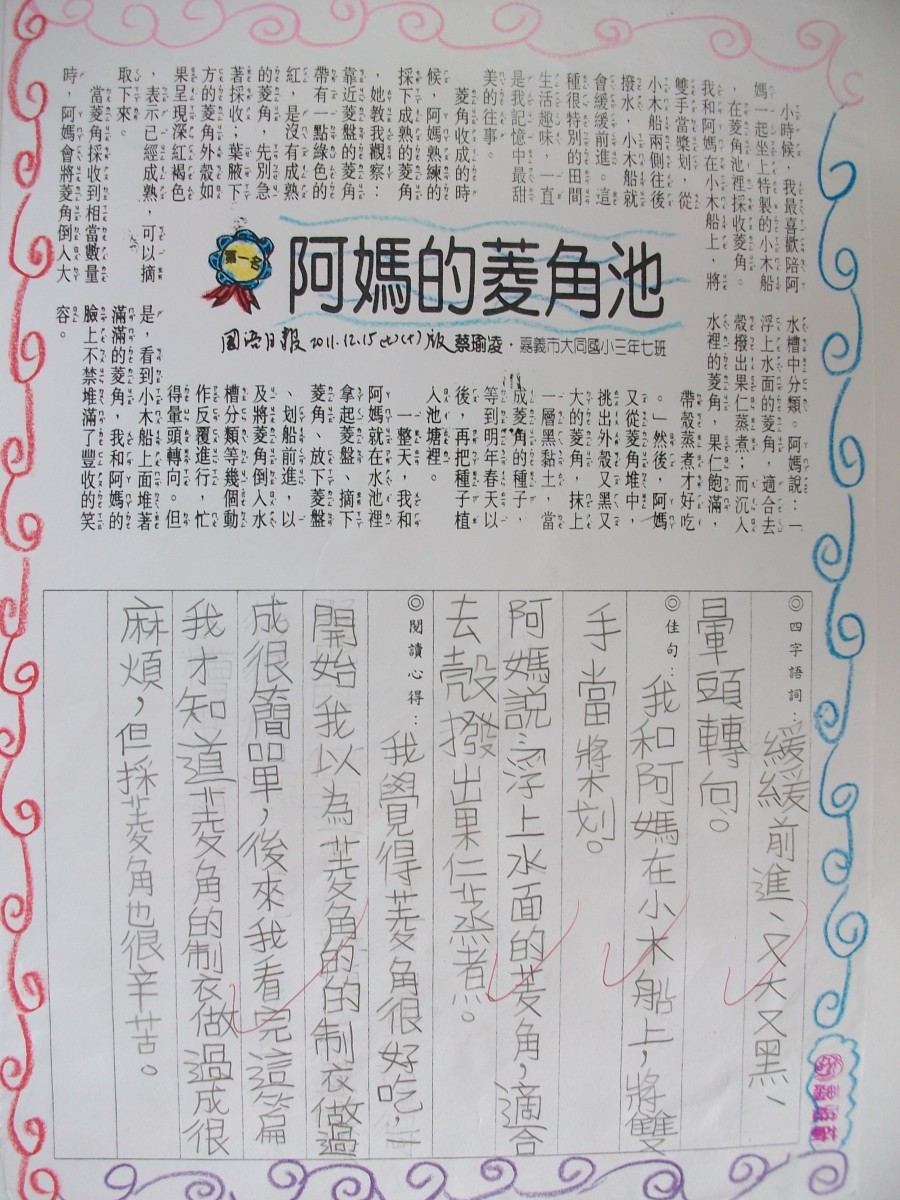 阿媽的菱角池
第一名
國語日報 2011.12.15(七)(十)版 蔡瑜凌・嘉義市大同國小三年七班
小時候，我最喜歡陪阿
媽一起坐上特製的小木船
，在菱角池裡採收菱角。
我和阿媽在小木船上，將
雙手當槳划，從
小木船兩側往後
撥水，小木船就
會緩緩前進。這
種很特別的田間
生活趣味，一直
是我記憶中最甜
美的往事。
菱角收成的時
候，阿媽熟練的
採下成熟的菱角
，她教我觀察：
靠近菱盤的菱角
帶有一點綠色的
紅，是沒有成熟
的菱角，先別急
著採收；葉腋下
方的菱角外殼如
果呈現深紅褐色
，表示已經成熟，可以摘
取下來。
當菱角採收到相當數量
時，阿媽會將菱角倒入大
水槽中分類。阿媽說：「
浮上水面的菱角，適合去
殼撥出果仁蒸煮；而沉入
水裡的菱角，果仁飽滿，
帶殼蒸煮才好吃
。」然後，阿媽
又從菱角堆中，
挑出外殼又黑又
大的菱角，抹上
一層黑黏土，當
成菱角的種子，
等到明年春天以
後，再把種子植
入池塘裡。
一整天，我和
阿媽就在水池裡
拿起菱盤、摘下
菱角、放下菱盤
、划船前進，以
及將菱角倒入水
槽分類等幾個動
作反覆進行，忙
得暈頭轉向。但
是，看到小木船上面堆著
滿滿的菱角，我和阿媽的
臉上不禁堆滿了豐收的笑
容。
◎四字語詞：緩緩前進、又大又黑、
暈頭轉向。
◎佳句：我和阿媽在小木船上，將雙
手當槳划。
阿媽說浮上水面的菱角，適合
去殼撥出果仁蒸煮。
◎閱讀心得：我覺得菱角很好吃，一
開始我以為菱角的的制衣做過
成很簡單，後來我看完這篇
我才知道菱角的制衣做過成很
麻煩，但採菱角也很辛苦。